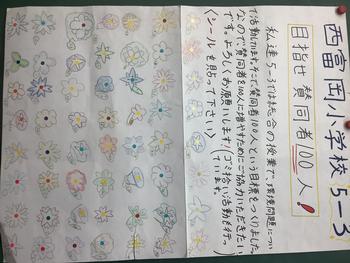 西富岡小学校 5-3
目指せ 賛同者100人!
私達5-3では総合の授業で環境問題につい
て活動してます。そこで、賛同者100人という目標をつくりました。
なので賛同者を100人に増やすためにご協力いただきたい
です。よろしくお願いします!(ゴミ拾い活動を行っ
ています。
(シールを貼って下さい)